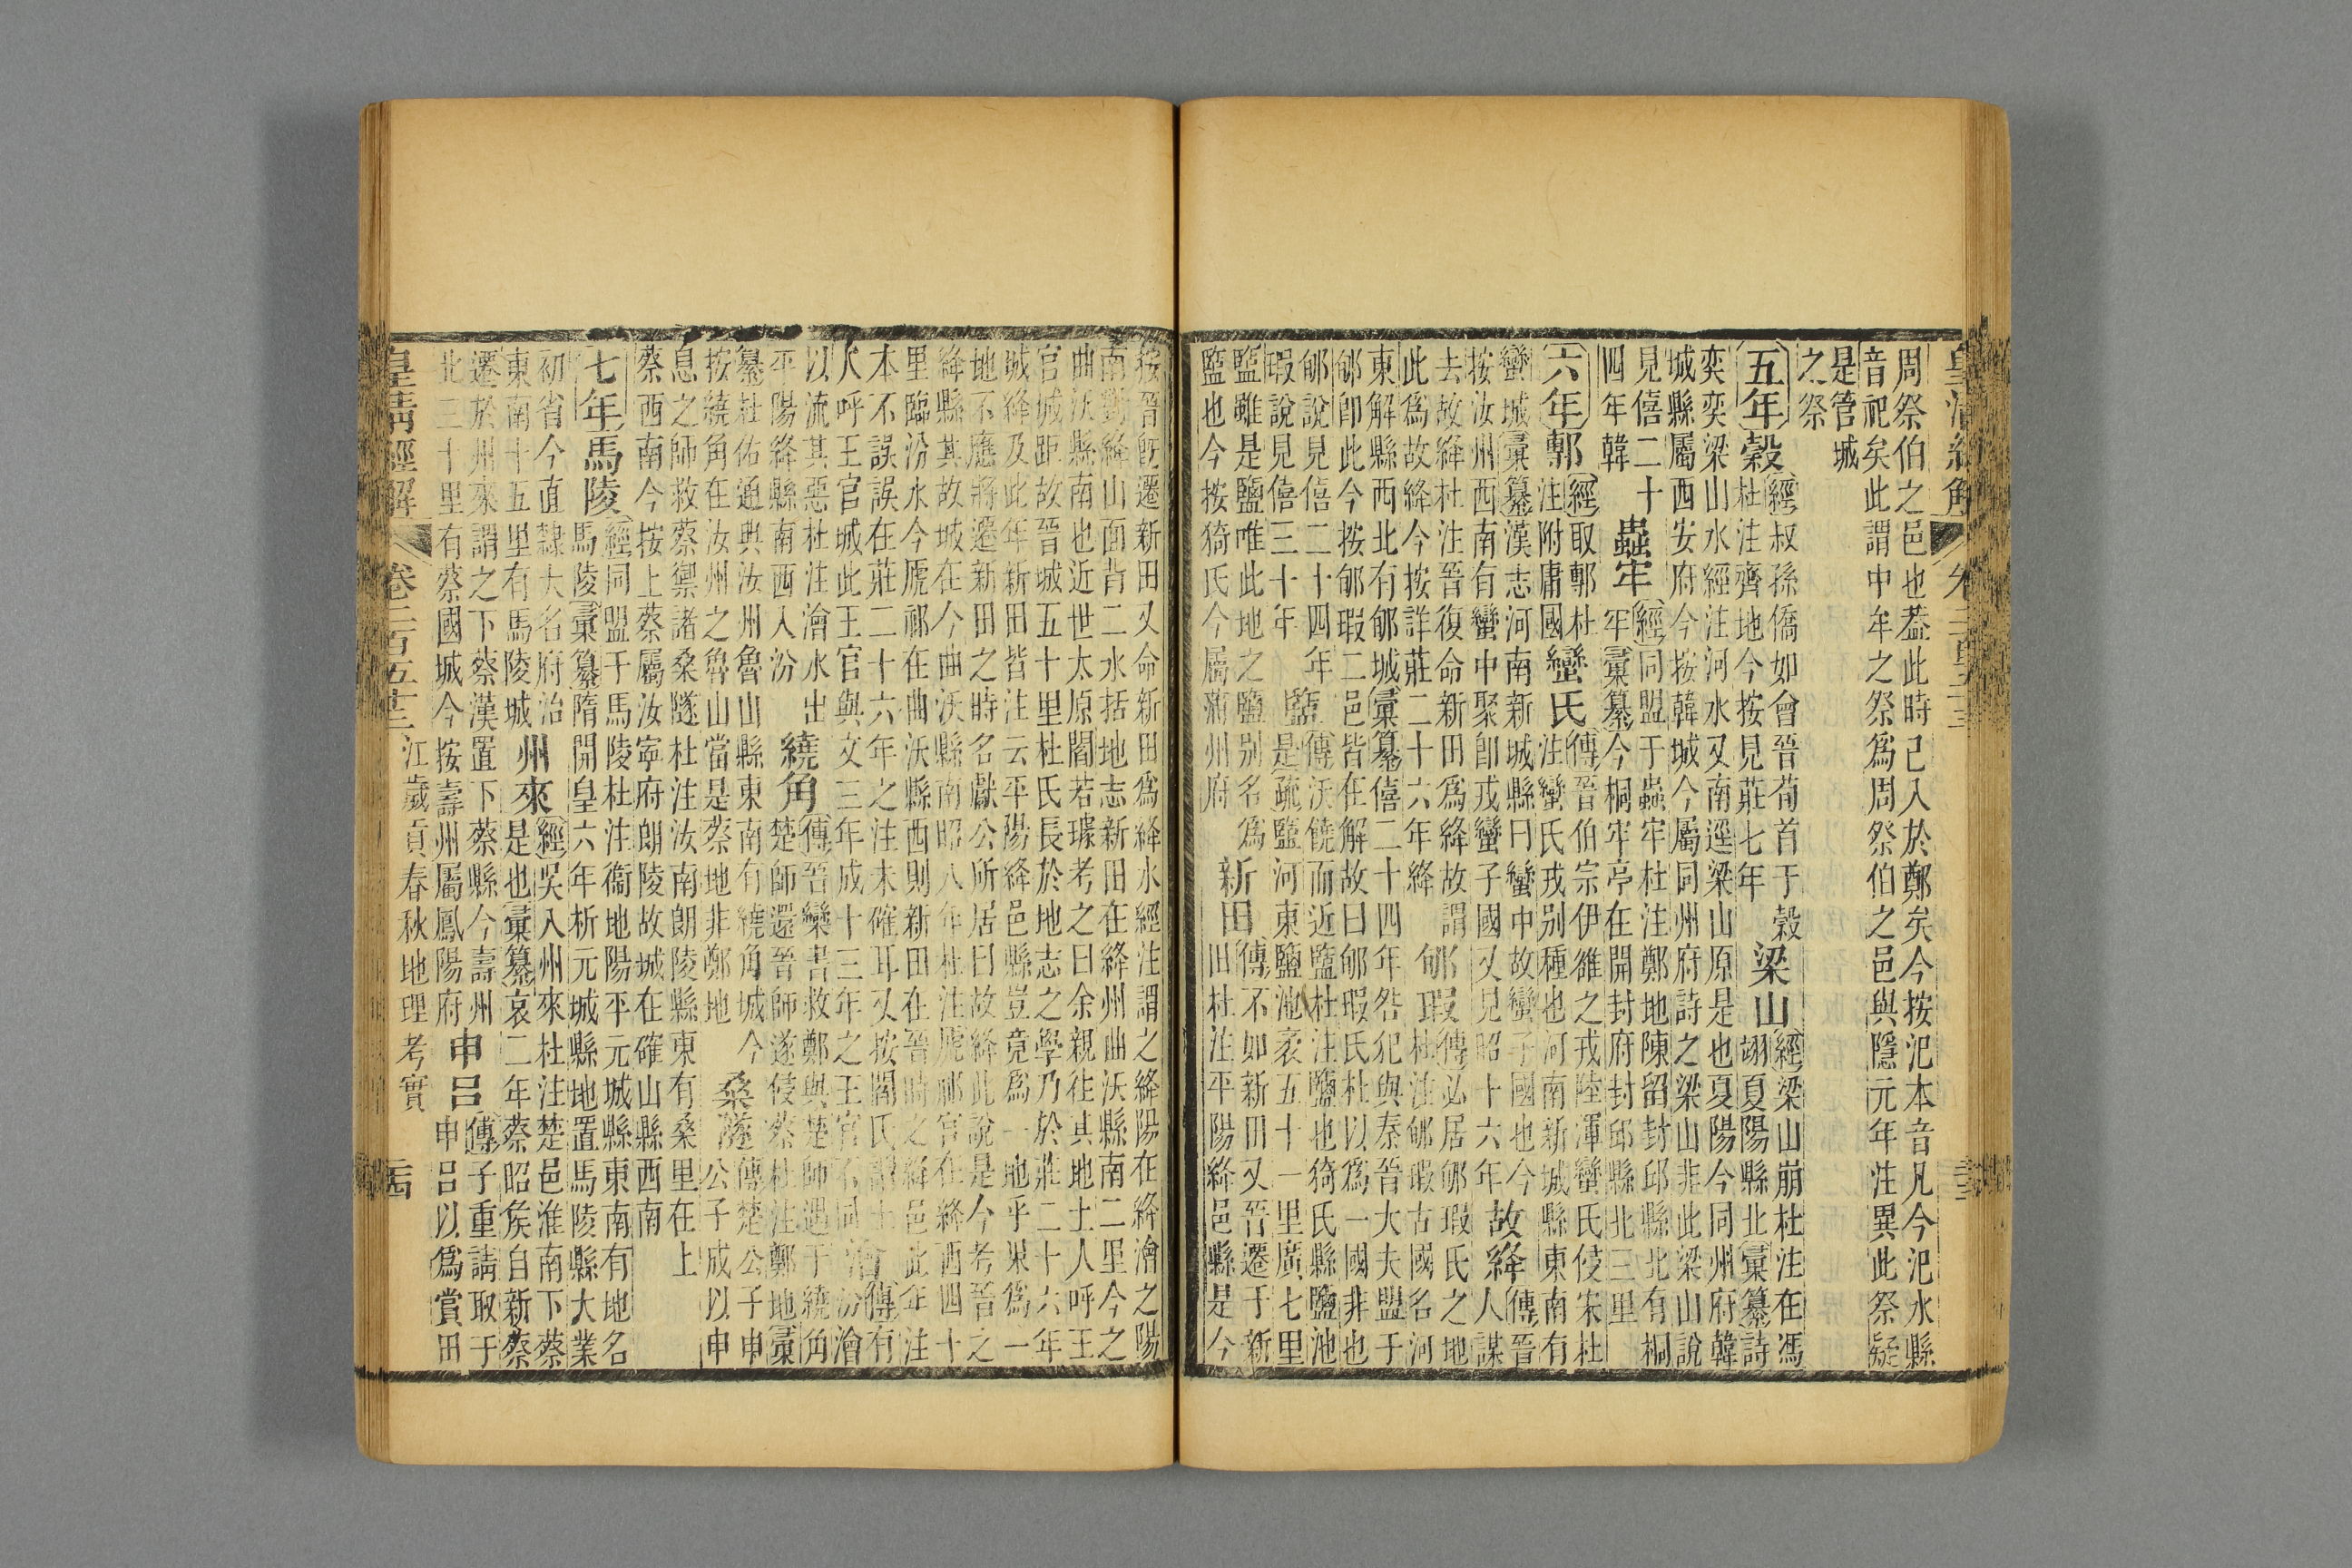 周祭伯之邑也葢此時已入於鄭矣今按汜本音凡今汜水縣
音祀矣此謂中牟之祭爲周祭伯之邑與隱元年注異此祭疑
是管城
之祭
五年
穀
經叔孫僑如會晉荀首于穀
杜注齊地今按見莊七年
梁山
經梁山崩杜注在馮
翊夏陽縣北彚纂詩
奕奕梁山水經注河水又南逕梁山原是也夏陽今同州府韓
城縣屬西安府今按韓城今屬同州府詩之梁山非此梁山說
見僖二十
四年韓
蟲牢
經同盟于蟲牢杜注鄭地陳留封邱縣北有桐
牢彚纂今桐牢亭在開封府封邱縣北三里
六年
鄟
經取鄟杜
注附庸國
蠻氏
傳晉伯宗伊雒之戎陸渾蠻氏侵宋杜
注蠻氏戎别種也河南新城縣東南有
蠻城彚纂漢志河南新城縣曰蠻中故蠻子國也今
按汝州西南有蠻中聚卽戎蠻子國又見昭十六年
故絳
傳晉
人謀
去故絳杜注晉復命新田爲絳故謂
此爲故絳今按詳莊二十六年絳
郇瑕
傳必居郇瑕氏之地
杜注郇瑕古國名河
東解縣西北有郇城彚纂僖二十四年咎犯與秦晉大夫盟于
郇卽此今按郇瑕二邑皆在解故曰郇瑕氏杜以爲一國非也
郇說見僖二十四年
瑕說見僖三十年
盬
傳沃饒而近盬杜注鹽也猗氏縣鹽池
是疏鹽河東鹽池袤五十一里廣七里
鹽雖是鹽唯此地之鹽别名爲
盬也今按猗氏今屬蒲州府
新田
傳不如新田又晉遷于新
田杜注平陽絳邑縣是今
按晉旣遷新田又命新田爲絳水經注謂之絳陽在絳澮之陽
南對絳山面背二水括地志新田在絳州曲沃縣南二里今之
曲沃縣南也近世太原閻若璩考之曰余親往其地土人呼王
官城距故晉城五十里杜氏長於地志之學乃於莊二十六年
城絳及此年新田皆注云平陽絳邑縣豈竟爲一地乎果爲一
地不應將遷新田之時名獻公所居曰故絳此說是今考晉之
絳縣其故城在今曲沃縣南昭八年杜注虒祁宮在絳西四十
里臨汾水今虒祁在曲沃縣西則新田在晉時之絳邑此年注
本不誤誤在莊二十六年之注未確耳又按閻氏謂土
人呼王官城此王官與文三年成十三年之王官不同
澮
傳有
汾澮
以流其惡杜注澮水出
平陽絳縣南西入汾
繞角
傳晉欒書救鄭與楚師遇于繞角
楚師還晉師遂侵蔡杜注鄭地彚
纂杜佑通典汝州魯山縣東南有繞角城今
按繞角在汝州之魯山當是蔡地非鄭地
桑隧
傳楚公子申
公子成以申
息之師救蔡禦諸桑隧杜注汝南朗陵縣東有桑里在上
蔡西南今按上蔡屬汝寧府朗陵故城在確山縣西南
七年
馬陵
經同盟于馬陵杜注衞地陽平元城縣東南有地名
馬陵彚纂隋開皇六年析元城縣地置馬陵縣大業
初省今直隸大名府治
東南十五里有馬陵城
州來
經吳入州來杜注楚邑淮南下蔡
是也彚纂哀二年蔡昭矦自新蔡
遷於州來謂之下蔡漢置下蔡縣今壽州
北三十里有蔡國城今按壽州屬鳳陽府
申呂
傳子重請取于
申呂以爲賞田
皇清經解
卷二百五十三
江歲貢春秋地理考實